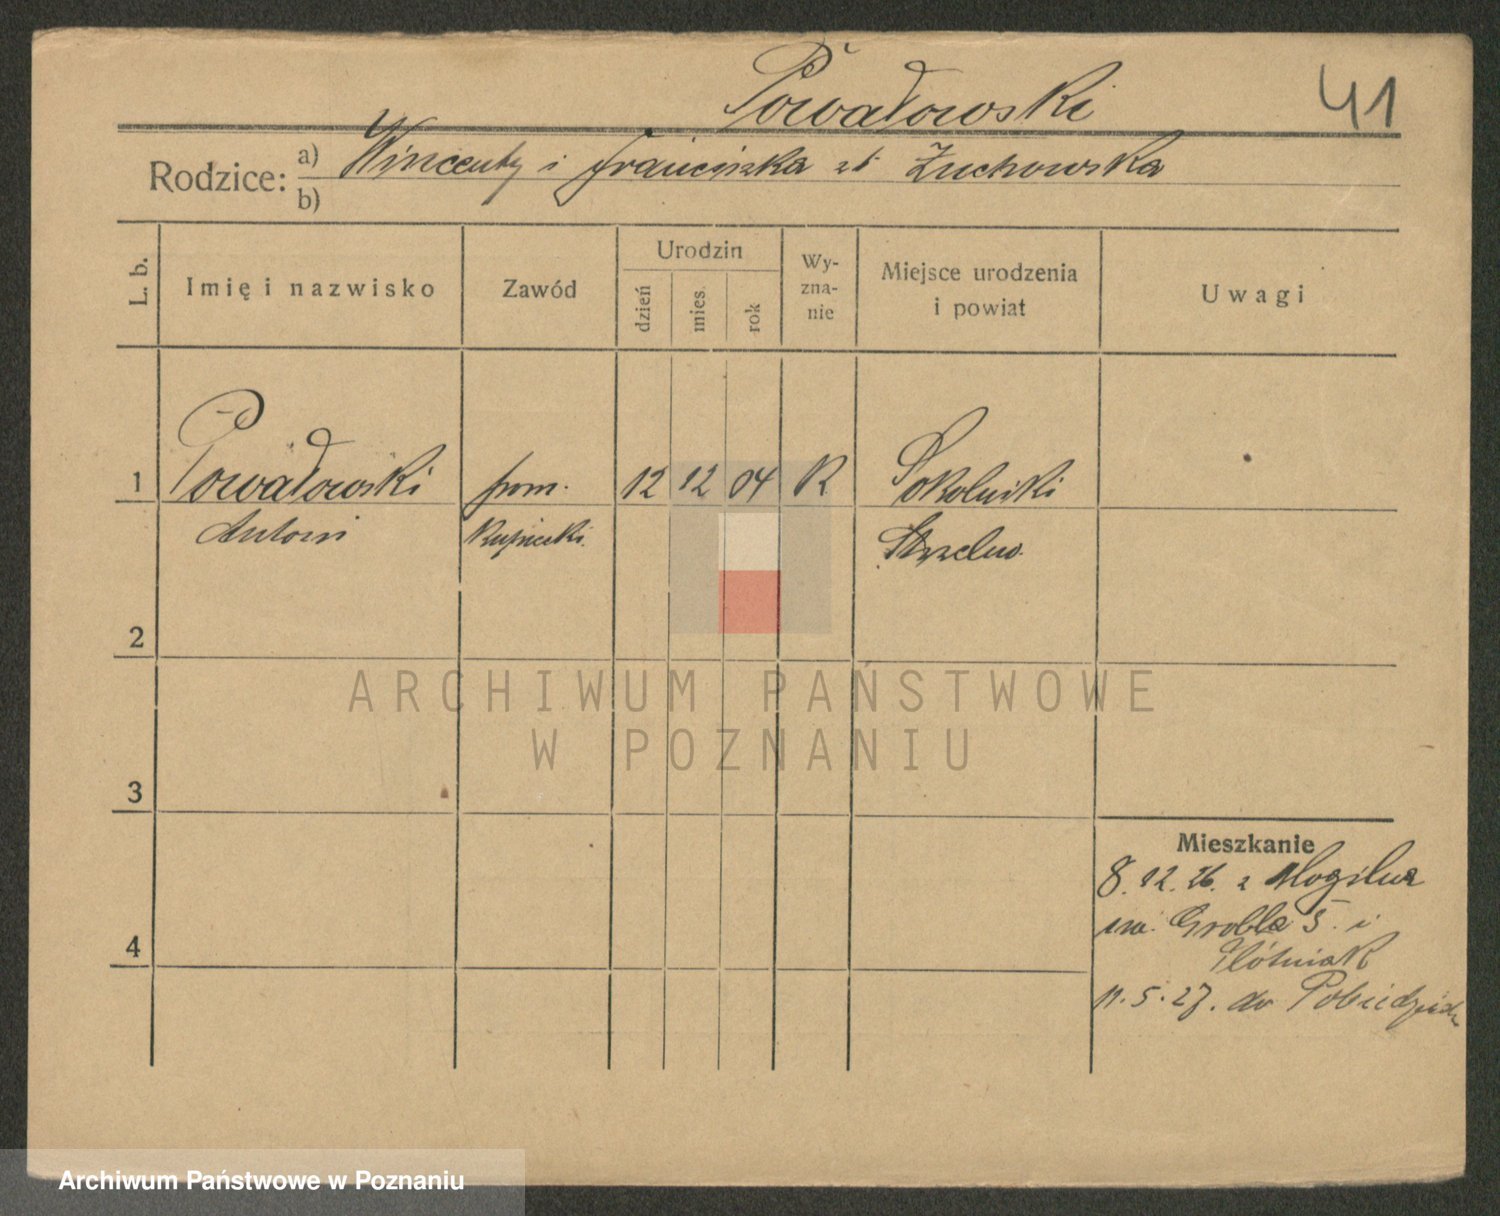 Powałowski 41
Rodzice: a) Wincenty i Franciszka zd Żuchowska
b)
L. b. Imię i nazwisko Zawód Urodzin Wyznanie Miejsce urodzenia i powiat Uwagi
dzień mies. rok
1 Powałowski pom. 12 12 04 R Sokolniki
Antoni kupiecki. Strzelno.
2
3
4
Mieszkanie
8.12.26. z Mogilna
na. Grobla 5. i
11.5.27. do Pobiedzisk
ARCHIWUM PAŃSTWOWE
W POZNANIU
Archiwum Państwowe w Poznaniu